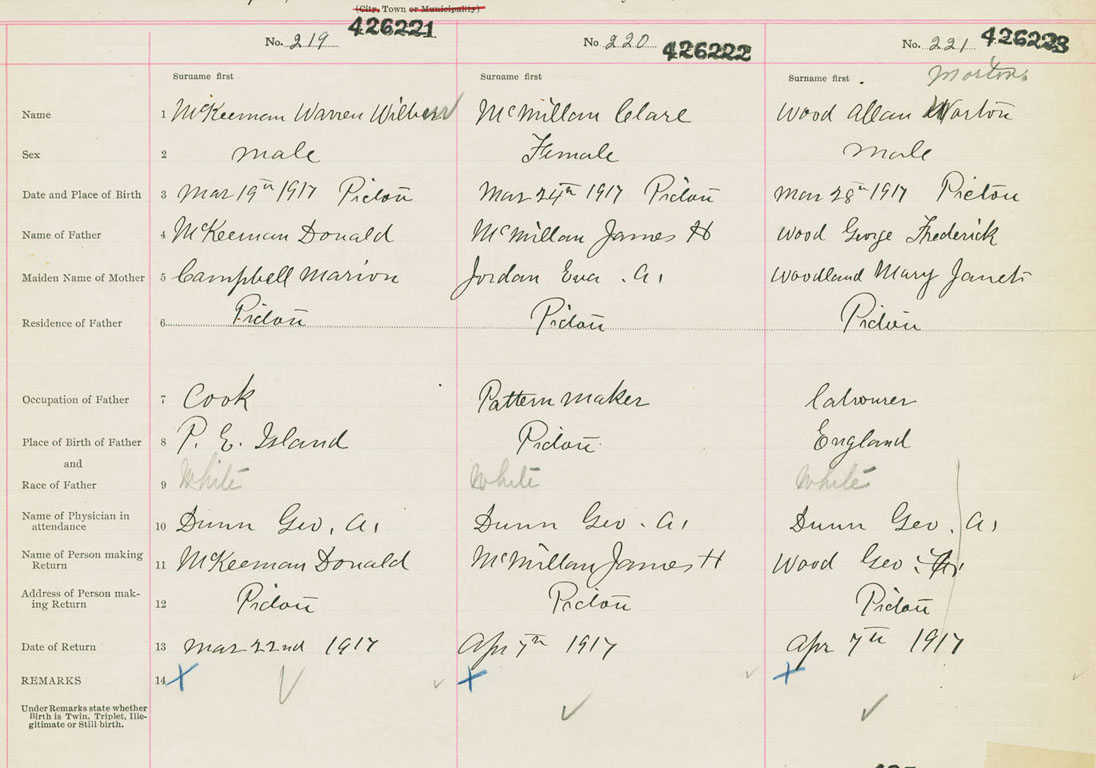 (City, Town or Municipality)
No. 219 426221 No. 220 426222 No. 221 426223
Surname first Surname first Surname first Morton
Name 1 McKeeman Warren Wilbern McMillan Clare Wood Allan Morton
Sex 2 male Female male
Date and Place of Birth 3 Mar 19th 1917 Pictou Mar 24th 1917 Pictou Mar 28th 1917 Pictou
Name of Father 4 McKeeman Donald McMillan James H Wood George Frederick
Maiden Name of Mother 5 Campbell Marion Jordan Eva . A. Woodland Mary Janet
Residence of Father 6 Pictou Pictou Pictou
Occupation of Father 7 Cook Pattern maker labourer
Place of Birth of Father 8 P. E. Island Pictou England
and
Race of Father 9 White White White
Name of Physician in
attendance 10 Dunn Geo. A. Dunn Geo. A. Dunn Geo. A.
Name of Person making
Return 11 McKeeman Donald McMillan James H Wood Geo.
Address of Person mak-
ing Return 12 Pictou Pictou Pictou
Date of Return 13 Mar 22nd 1917 Apr 7th 1917 Apr 7th 1917
REMARKS 14 X X X
Under Remarks state whether
Birth is Twin, Triplet, Ille-
gitimate or Still birth.